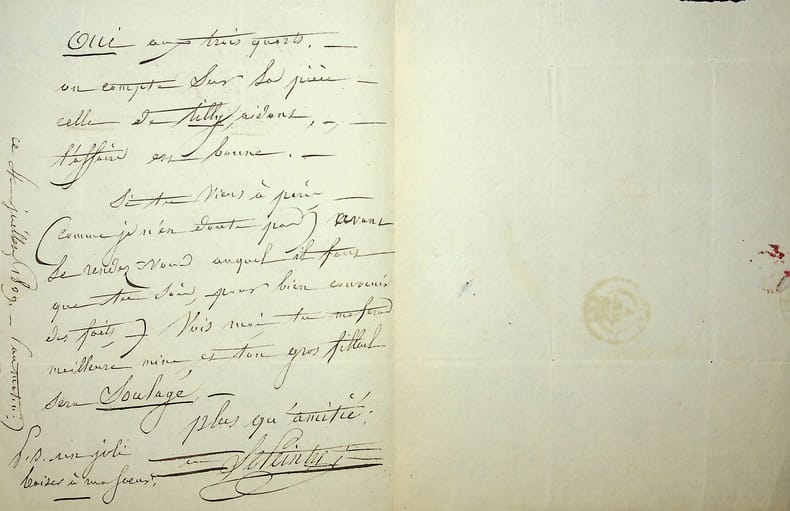 Oui aux trois quarts. —
on compte sur la pièce —
celle de tilly, aidant, —
l'affaire est bonne. —
Si tu viens à
(comme je n'en doute pas) avant
le rendez-vous auquel il faut
que tu sois, pour bien convenir
des faits, Vois moi tu me feras
meilleure mine, et ton gros filleul
sera Soulagé. —
plus qu'amitié:
P.S. un joli
baiser à ma soeur.
ce juillet 1809. —